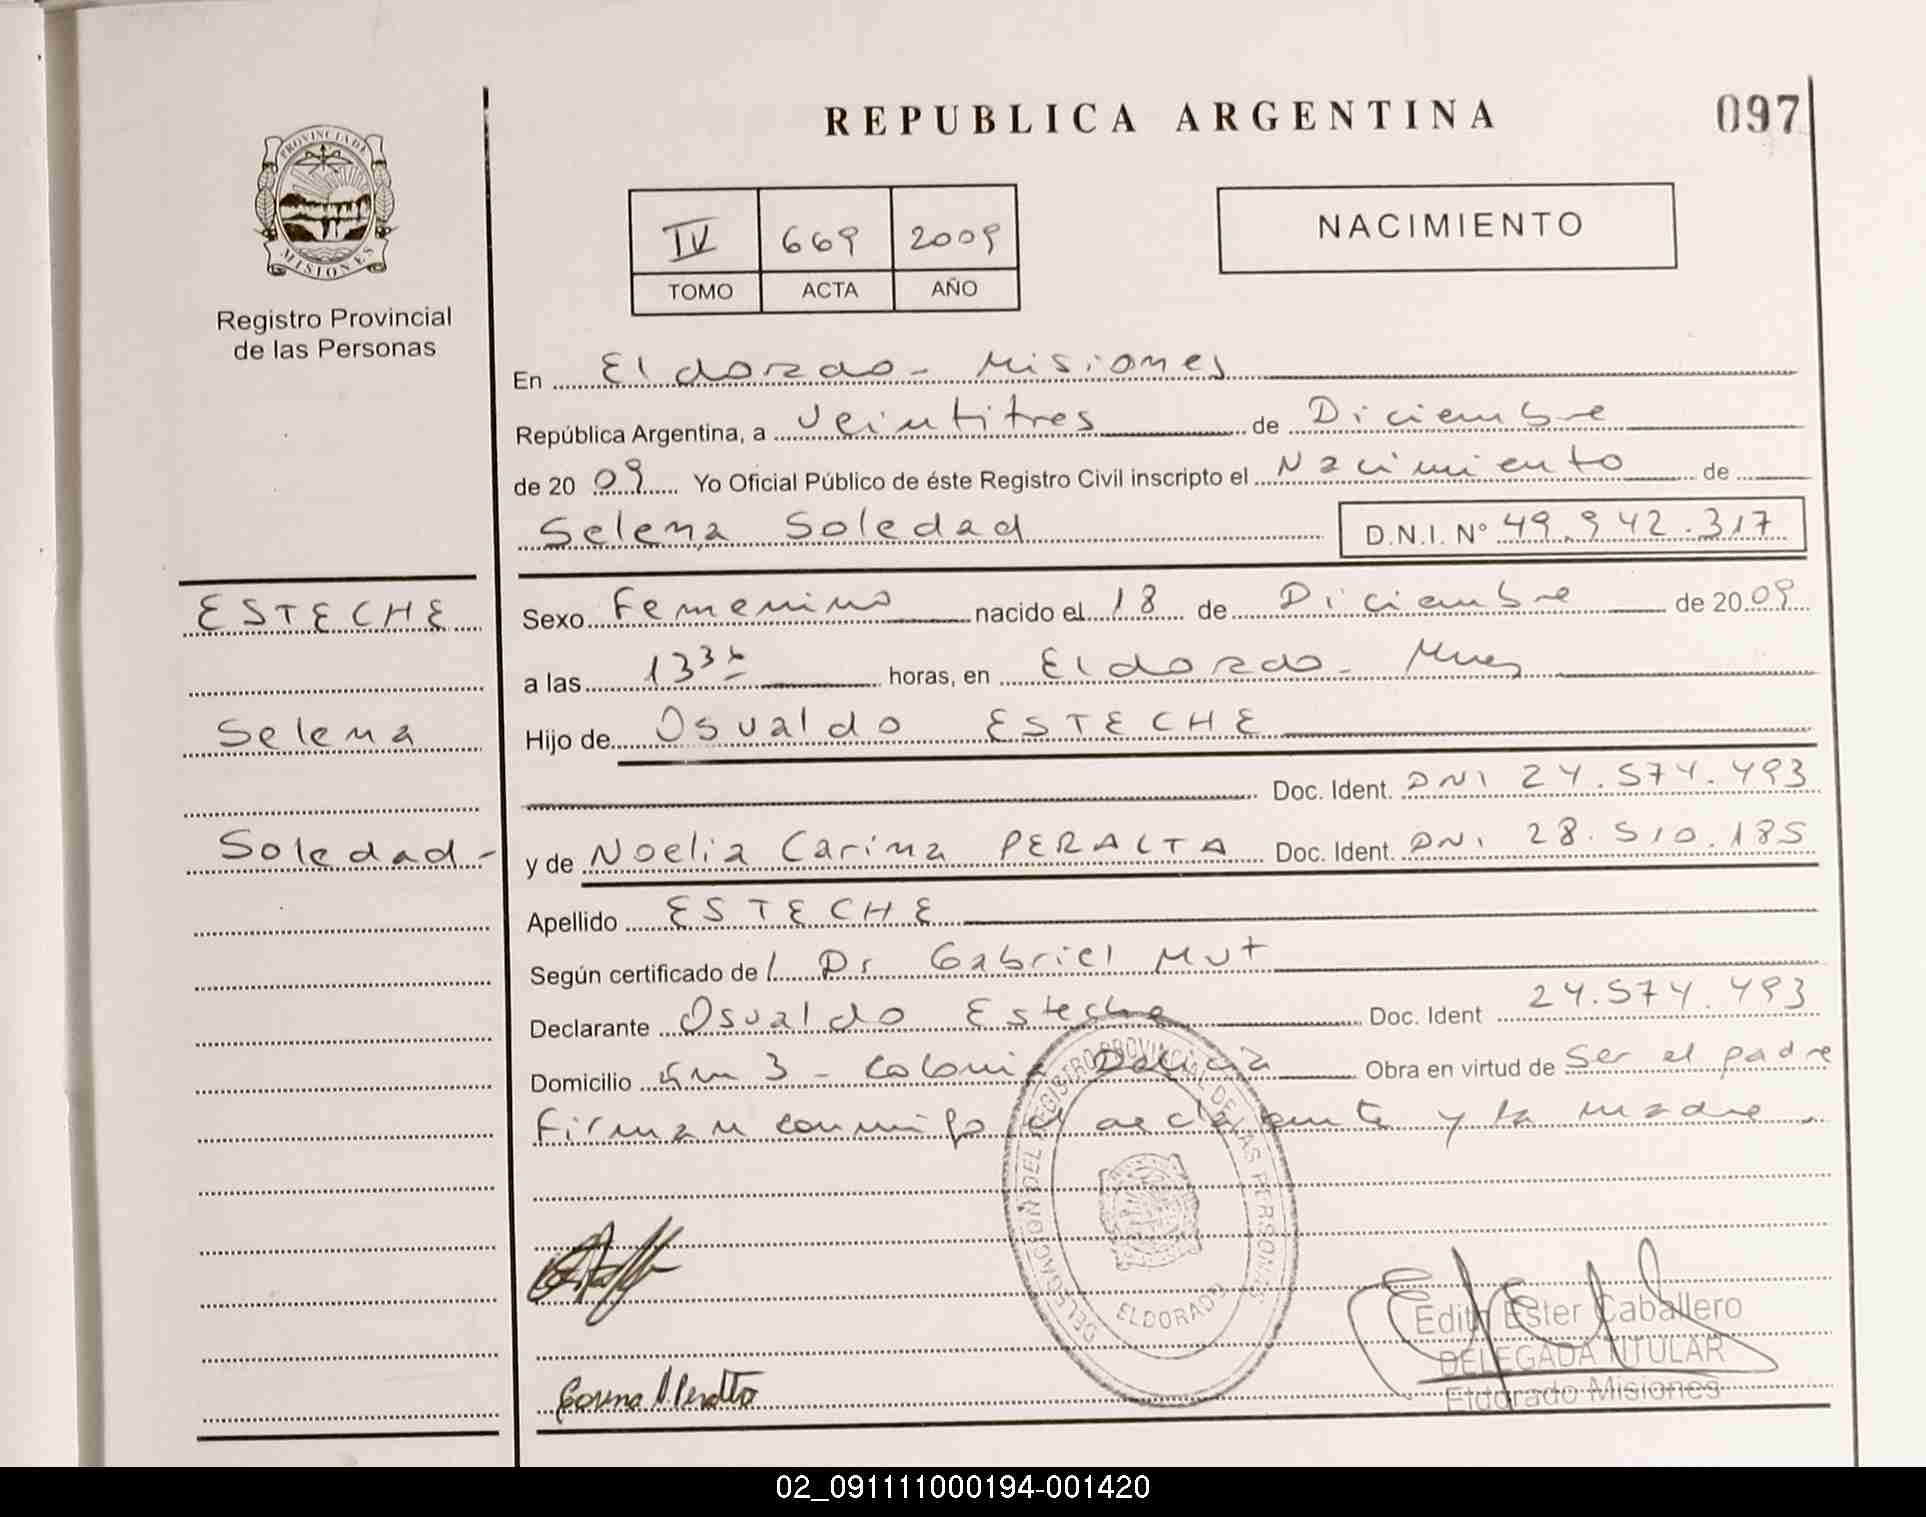 REPUBLICA ARGENTINA
097
PROVINCIA DE
MISIONES
Registro Provincial
de las Personas
IV 669 2009
TOMO ACTA AÑO
NACIMIENTO
En Eldorado - Misiones
República Argentina, a Veintitres de Diciembre
de 2009 Yo Oficial Público de éste Registro Civil inscripto el Nacimiento de
Selena Soledad D.N.I. N° 49.942.317
ESTECHE
Selena
Soledad -
Sexo Femenino nacido el 18 de Diciembre de 2009
a las 13 horas, en Eldorado - Mnes
Hijo de Osvaldo ESTECHE
Doc. Ident. DNI 24.574.493
y de Noelia Carina PERALTA Doc. Ident. DNI 28.510.185
Apellido ESTECHE
Según certificado de l Dr Gabriel Mut
Declarante Osvaldo Esteche Doc. Ident 24.574.493
Domicilio Km 3 - Colonia Delicia Obra en virtud de Ser el padre
Firman conmigo el declarante y la madre.
DELEGACION DEL REGISTRO PROVINCIAL DE LAS PERSONAS
ELDORADO
Edith Ester Caballero
DELEGADA TITULAR
Eldorado Misiones
Peralta
02_091111000194-001420